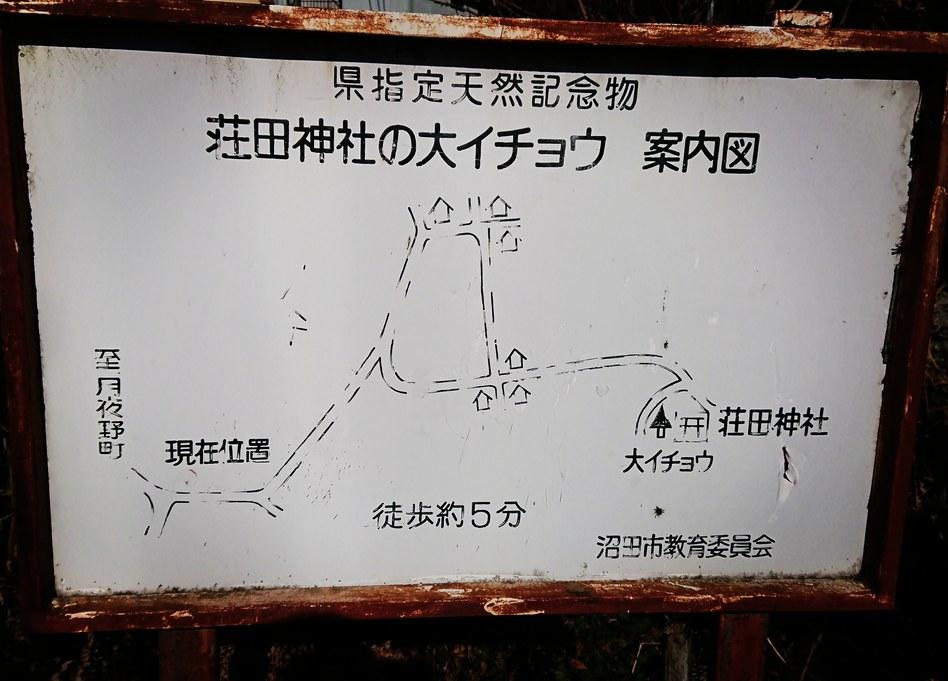 県指定天然記念物
荘田神社の大イチョウ 案内図
至月夜野町
現在位置
荘田神社
大イチョウ
徒歩約5分
沼田市教育委員会